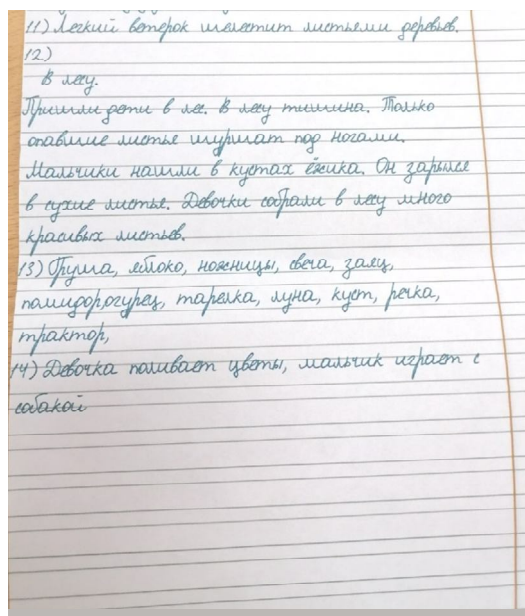 11) Легкий ветерок шелестит листьями деревьев.
12)
В лесу.
Пришли дети в лес. В лесу тишина. Только
опавшие листье шуршат под ногами.
Мальчики нашли в кустах ёжика. Он зарылся
в сухие листье. Девочки собрали в лесу много
красивых листьев.
13) Груша, яблоко, ножницы, свеча, заяц,
помидор,огурец, тарелка, луна, куст, речка,
трактор,
14) Девочка поливает цветы, мальчик играет с
собакой